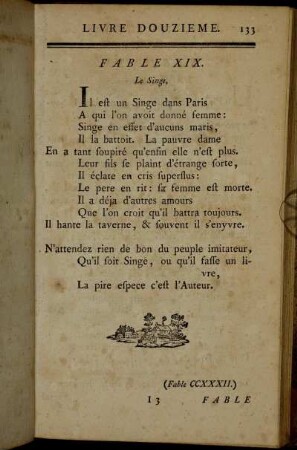 LIVRE DOUZIEME. 133
FABLE XIX.
Le Singe.
Il est un Singe dans Paris
A qui l'on avoit donné femme:
Singe en effet d'aucuns maris,
Il la battoit. La pauvre dame
En a tant soupiré qu'enfin elle n'est plus.
Leur fils se plaint d'étrange sorte,
Il éclate en cris superflus:
Le pere en rit: sa femme est morte.
Il a déja d'autres amours
Que l'on croit qu'il battra toujours.
Il hante la taverne, & souvent il s'enyvre.
N'attendez rien de bon du peuple imitateur,
Qu'il soit Singe, ou qu'il fasse un li-
vre,
La pire espece c'est l'Auteur.
(Fable CCXXXII.)
I 3 FABLE